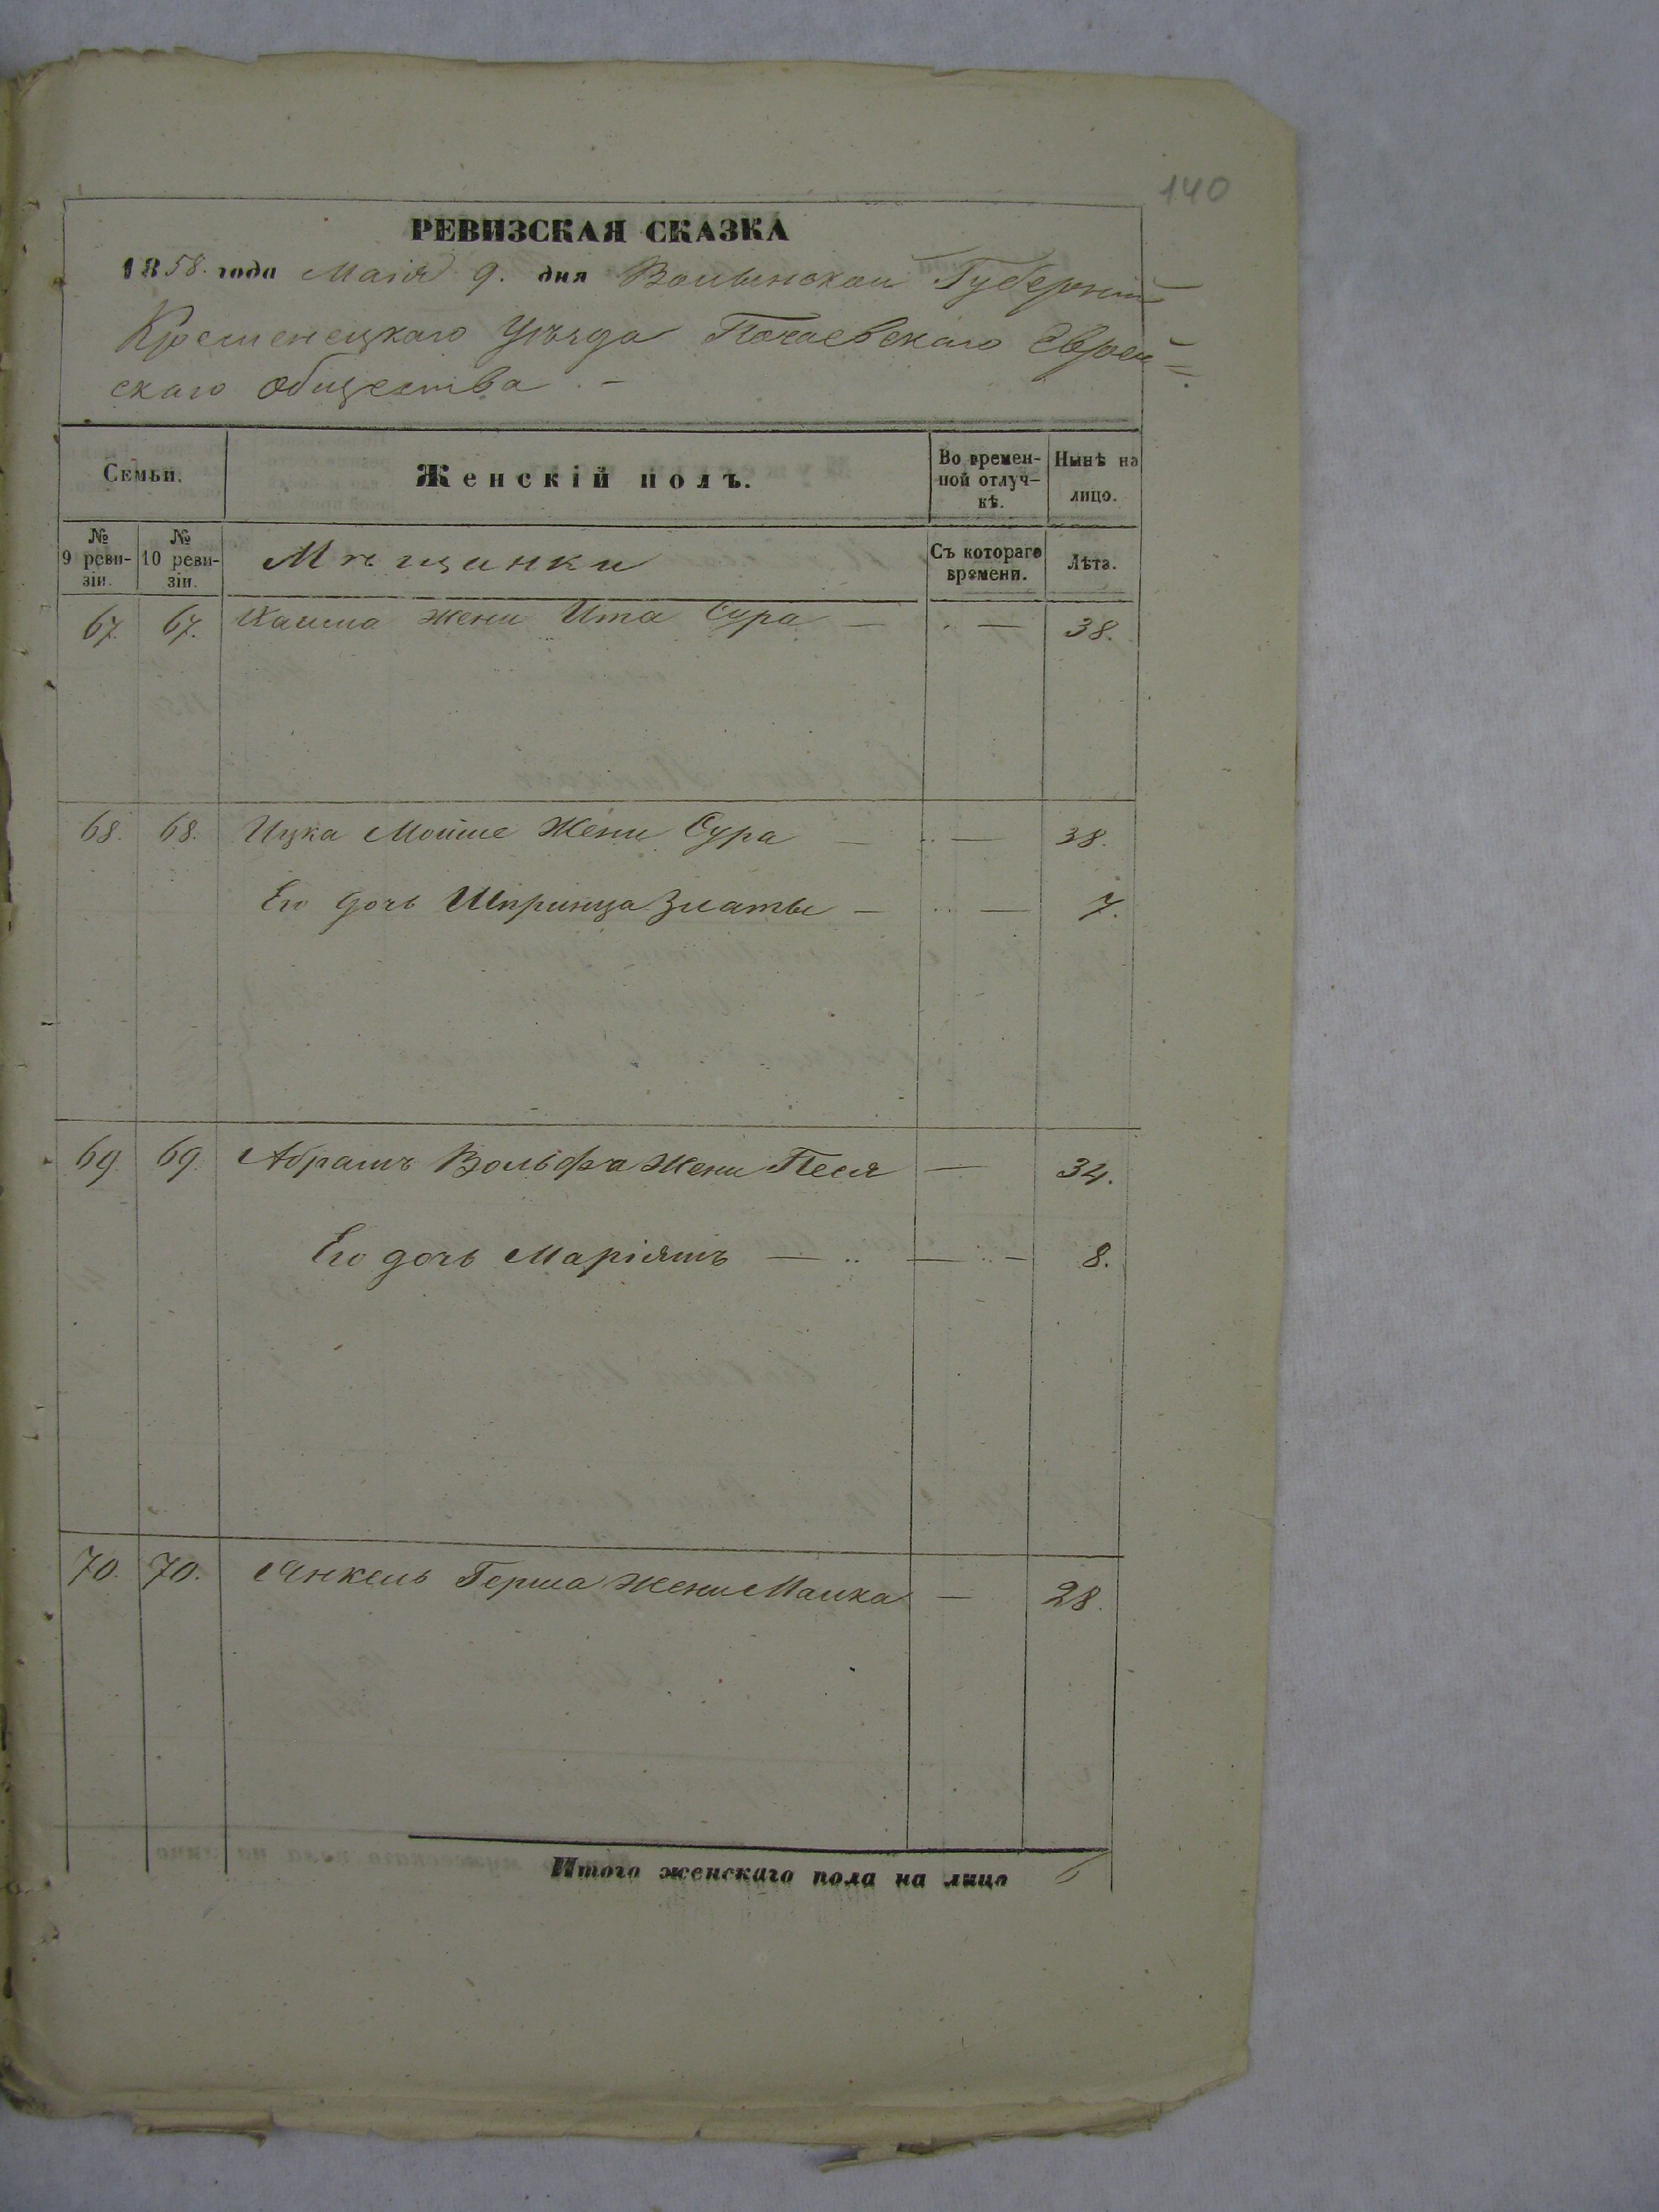 140
РЕВИЗСКАЯ СКАЗКА
1858. года Маія 9. дня Волынской Губерніи
Кременецкаго Уѣзда Почаевскаго Еврей=
скаго Общества. -
Семьи. Женскій полъ. Во времен-ной отлуч-кѣ. Нынѣ на лицо.
№ 9 реви-зіи. № 10 реви-зіи. Мѣщанки Съ котораго времени. Лѣта.
67. 67. жени Ита Сура — — 38.
68. 68. Ицка Мойше Жени Сура — — 38.
Его дочь Шпринца Златы — — 7.
69. 69. Абрамъ Вольфа Жени Песя — 34.
Его дочь Маріямъ — — 8.
70. 70. Янкель Герша Жени Малка — 28.
Итого женскаго пола на лицо 6